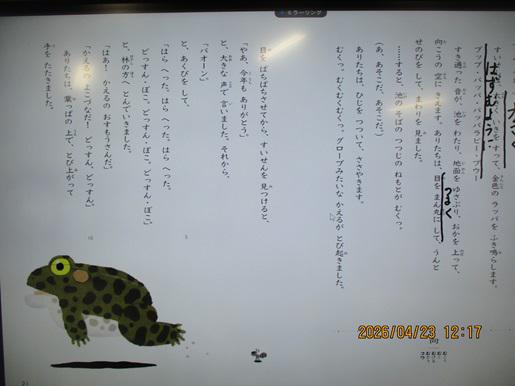 ミラーリング
はずむよう
いきをすって、金色の ラッパを ふき鳴らします。
プップ・パッパ・パッパラピー・プウー
すき通った 音が、池を わたり、地面を ゆさぶり、おかを 上って、
向こうの 空に きえます。ありたちは、目を まん丸に して、うんと
まるく
せのびを して、まわりを 見ました。
……すると、池の そばの つつじの ねもとが むくっ。
(あ、あそこだ、あそこだ。)
ありたちは、ひじを つついて、ささやきます。
むくっ、むくむくむくっ。グローブみたいな かえるが とび起きました。
目を ぱちぱちさせてから、すいせんを 見つけると、
「やあ、今年も ありがとう。」
と、大きな 声で 言いました。それから、
「パオーン。」
と、あくびを して、
「はら へった、はら へった、はら へった。
どっすん・ぽこ、どっすん・ぽこ、どっすん・ぽこ。」
と、林の 方へ とんでいきました。
「はあ!かえるの おすもうさんだ。」
「かえるの よこづなだ!どっすん、どっすん。」
ありたちは、葉っぱの 上で、とび上がって
手を たたきました。
向
2026/04/23 12:17